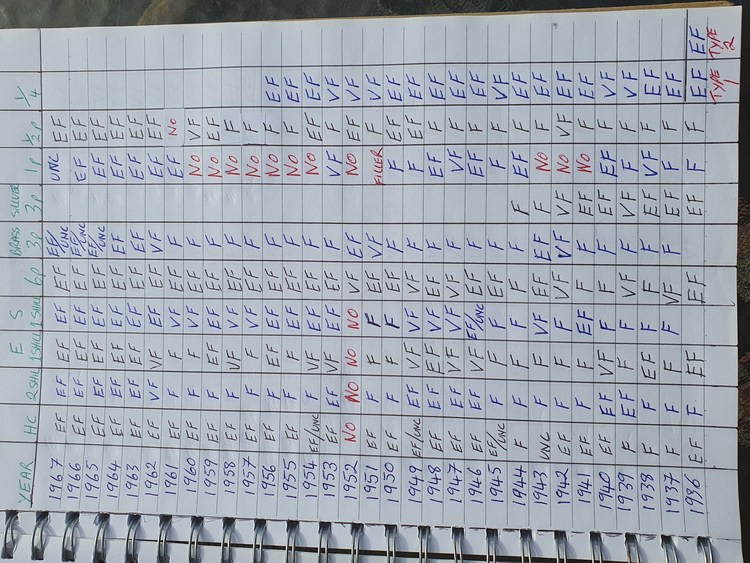 YEAR HC 2 SHIL E 1 SHIL S 1 SHIL 6p BRASS 3p SILVER 3p 1p ½p 1/4
1967 EF EF EF EF EF EF/UNC UNC EF
1966 EF EF EF EF EF EF/UNC EF EF
1965 EF EF EF EF EF EF/UNC EF EF
1964 EF EF EF EF EF EF EF EF
1963 EF EF EF EF EF EF EF EF
1962 EF VF VF EF EF VF EF EF
1961 EF F F VF EF F EF No
1960 EF F F VF EF F NO VF
1959 EF EF VF EF EF F NO EF
1958 EF F VF VF EF F NO F
1957 EF F F VF EF F NO F
1956 EF EF EF EF EF F NO F EF
1955 EF F F VF EF F NO F EF
1954 EF/UNC F VF EF EF F NO EF EF
1953 EF EF VF EF EF F VF F VF
1952 NO NO NO NO VF EF NO EF VF
1951 EF F F F EF VF FILLER F VF
1950 EF F F F EF F F EF EF
1949 EF/UNC EF VF VF VF F F EF EF
1948 EF EF EF VF EF F EF F EF
1947 EF EF VF VF VF F VF F EF
1946 EF EF VF EF/UNC EF F EF F EF
1945 EF/UNC F F F EF F F F VF
1944 F F F F F F F EF F EF
1943 UNC F F VF EF EF F NO F EF
1942 EF F F F VF VF VF NO VF EF
1941 EF F F EF F F EF NO F EF
1940 EF EF VF F F F EF F F VF
1939 F EF F F VF F VF F F VF
1938 F F EF F F F EF VF F EF
1937 F F F F VF F EF F F EF
1936 EF F EF EF EF F F EF EF
TYPE 1 TYPE 2